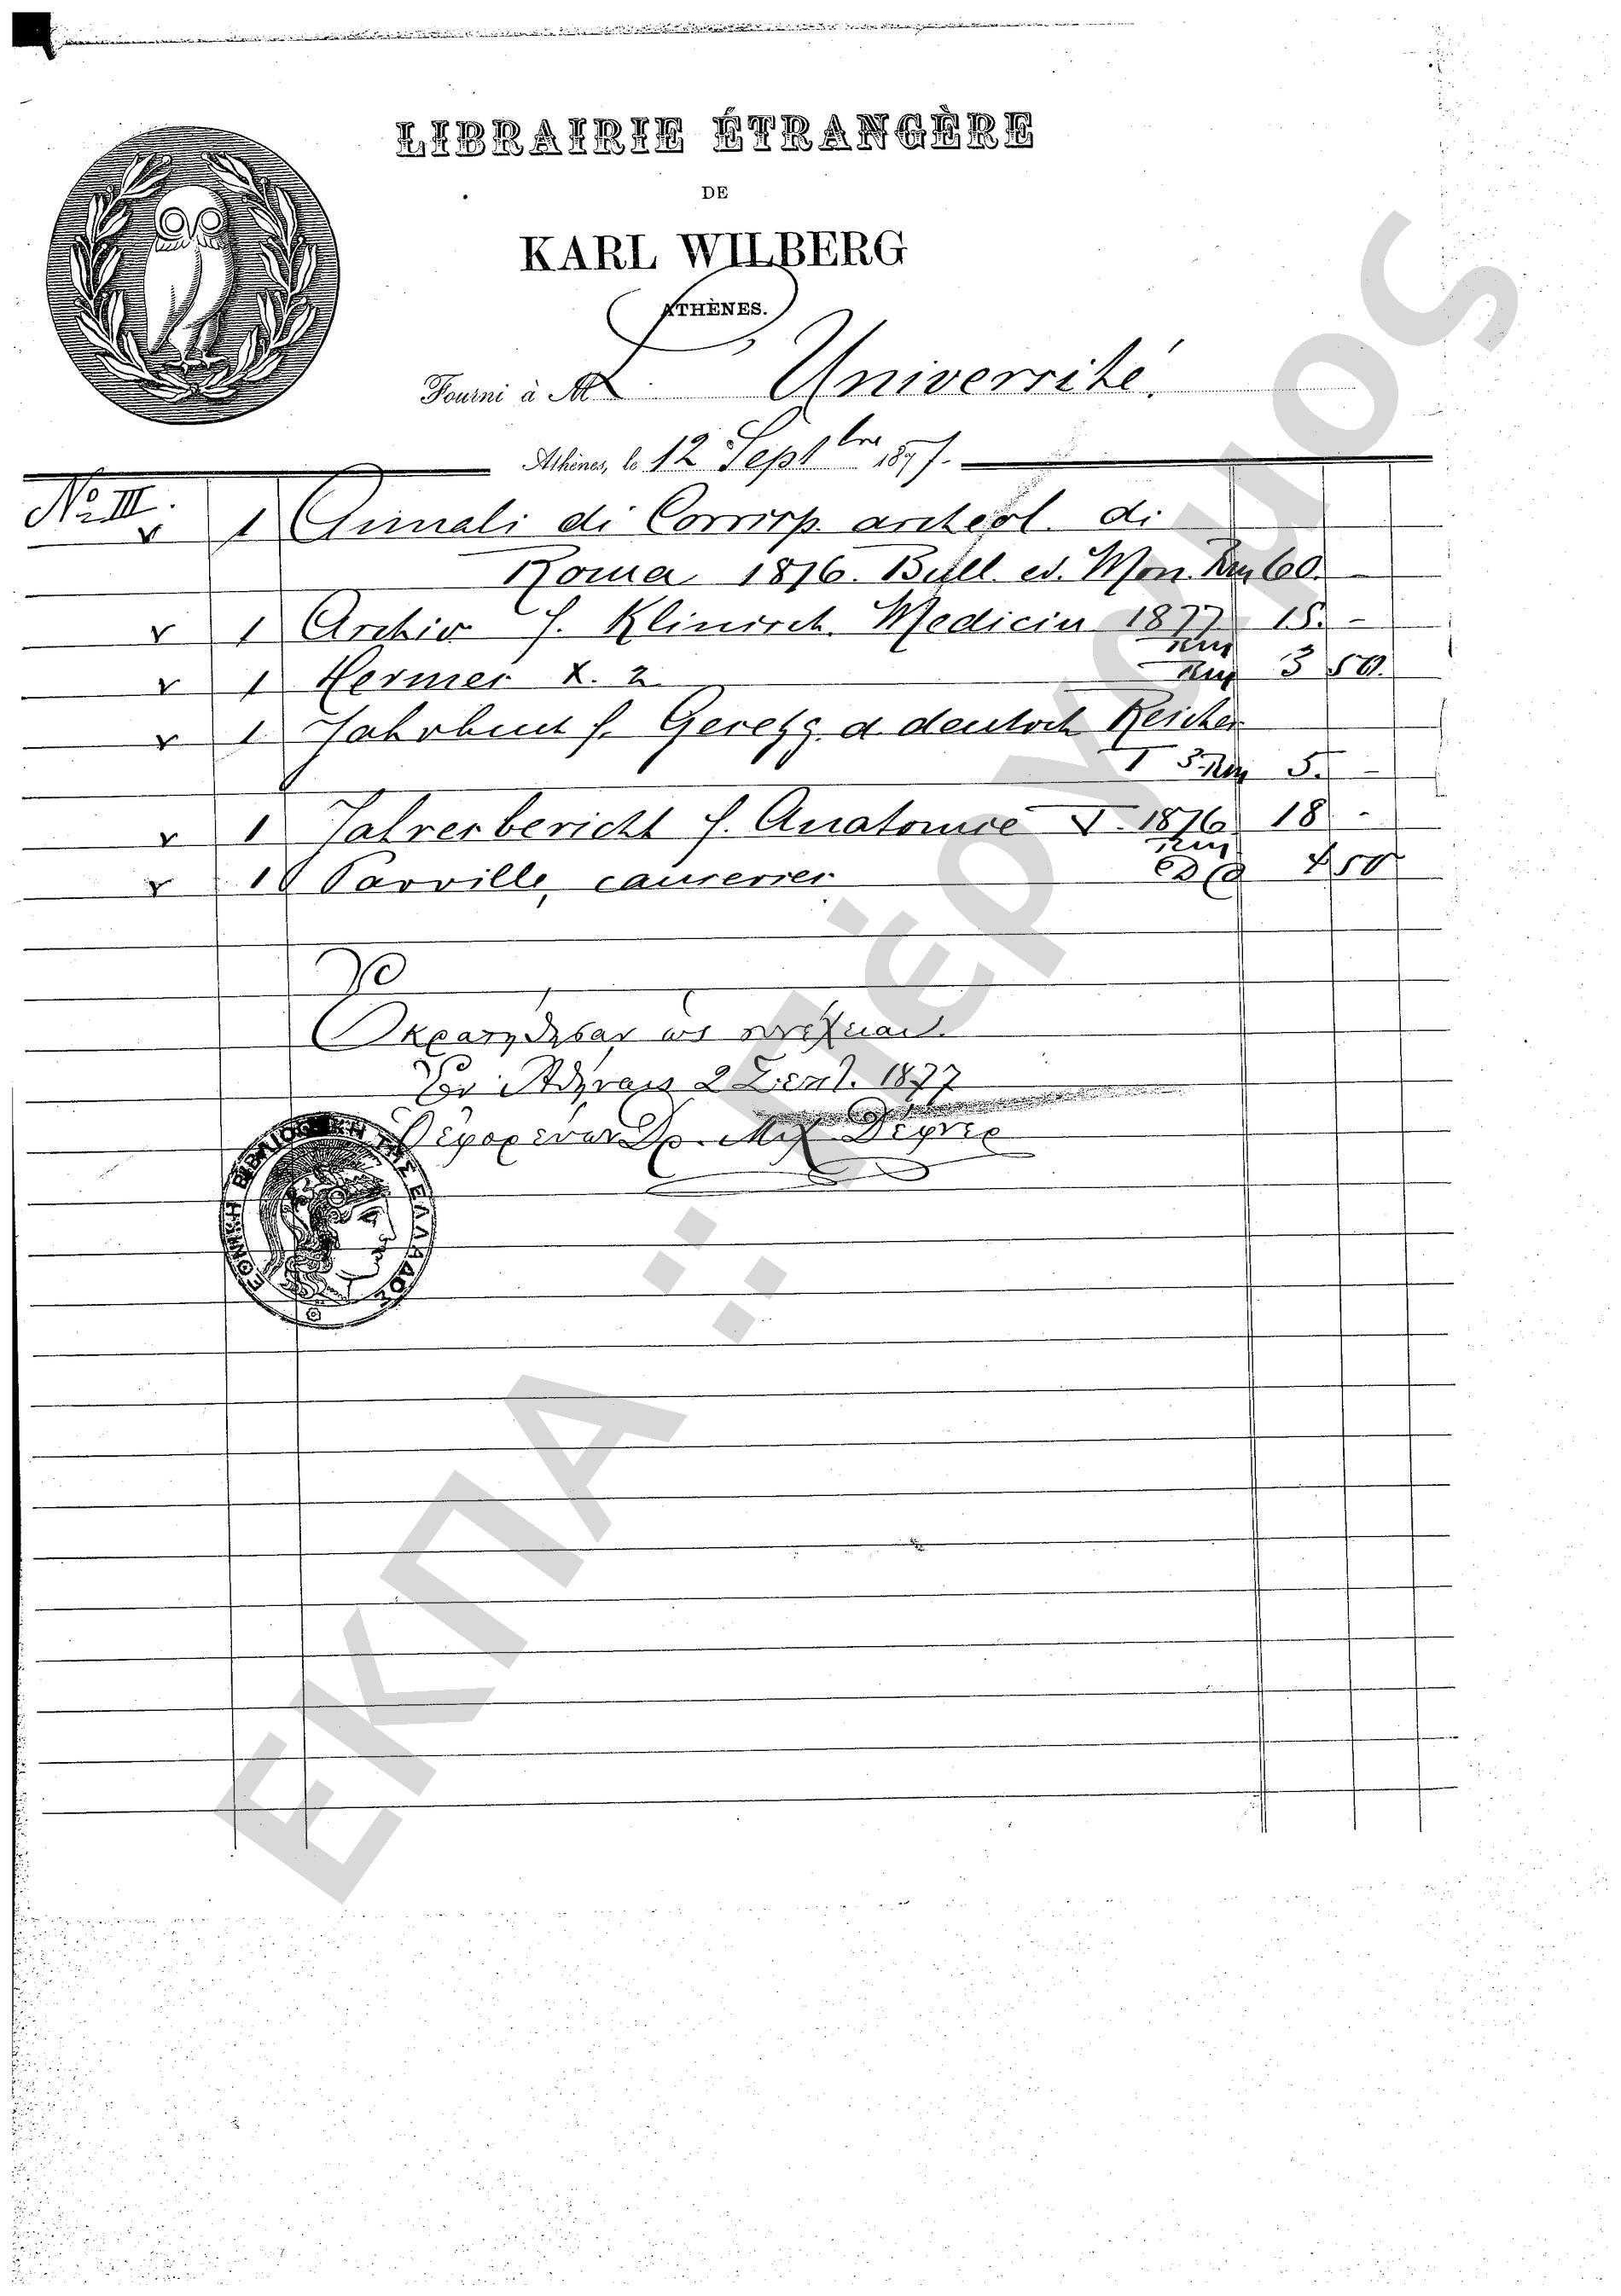 LIBRAIRIE ÉTRANGÈRE
DE
KARL WILBERG
ATHÈNES.
Fourni à M L' Université.
Athènes, le 12 Septbre 1877.
No III.
v 1 Annali di Corrisp. archeol. di
Roma 1876. Bull. ed. Mon. Rm 60. -
v 1 Archiv f. Klinisch. Medicin 1877 Rm 15. -
v 1 Hermes X. 2 Rm 3 50.
v 1 Jahrbuch f. Gesetzg. d. deutsch Reiches
I 3. Rm 5. -
v 1 Jahresbericht f. Anatomie V. 1876 Rm 18 -
v 1 Parville, causeries 50
Ἐκρατήθησαν ὡς συνέχεια
Ἐν Ἀθήναις 2 Σεπτ. 1877
Μιχ Δέφνερ
ΕΘΝΙΚΗ ΒΙΒΛΙΟΘΗΚΗ ΤΗΣ ΕΛΛΑΔΟΣ
ΕΚΠΑ :: Πέργαμος